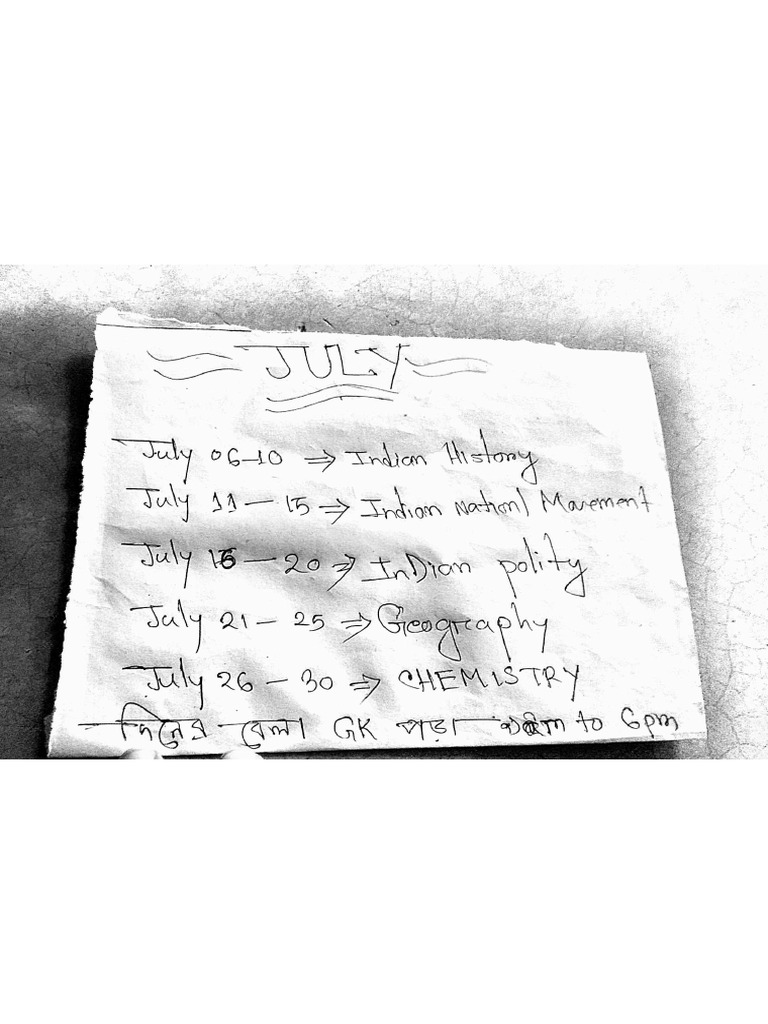 JULY
July 06-10 ⇒ Indian History
July 11 - 15 ⇒ Indian National Movement
July 16 - 20 ⇒ InDian polity
July 21 - 25 ⇒ Geography
July 26 - 30 ⇒ CHEMISTRY
দিনের বেলা GK পড়া to 6pm